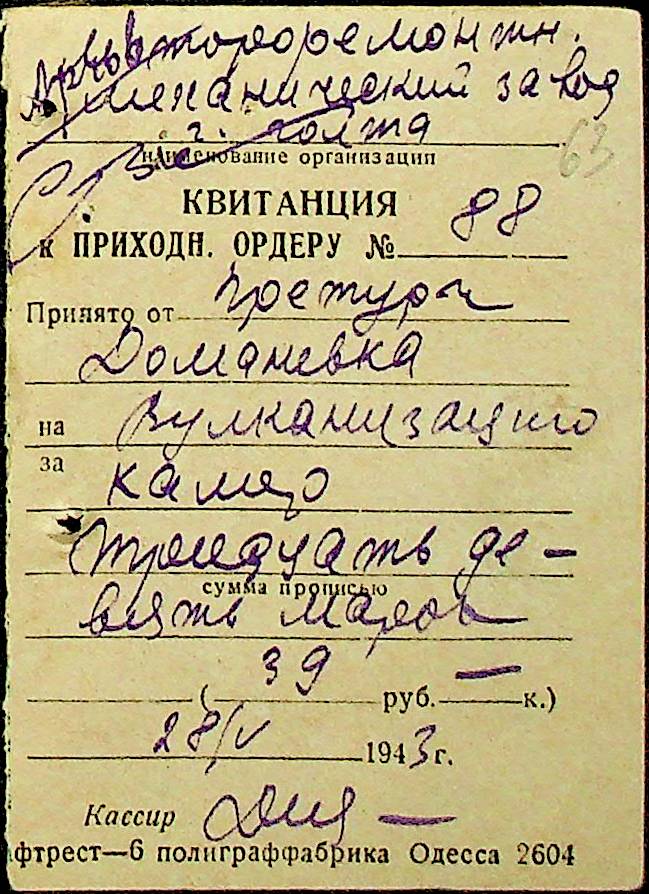 механический завод
г. Голта
наименование организации
63
КВИТАНЦИЯ
К ПРИХОДН. ОРДЕРУ № 88
Принято от Претура
Доманевка
на Вулканизацию
за камер
тридцать де-
сумма прописью
вять марок
( 39 руб. — к.)
28/V 1943 г.
Кассир
фтрест—6 полиграффабрика Одесса 2604